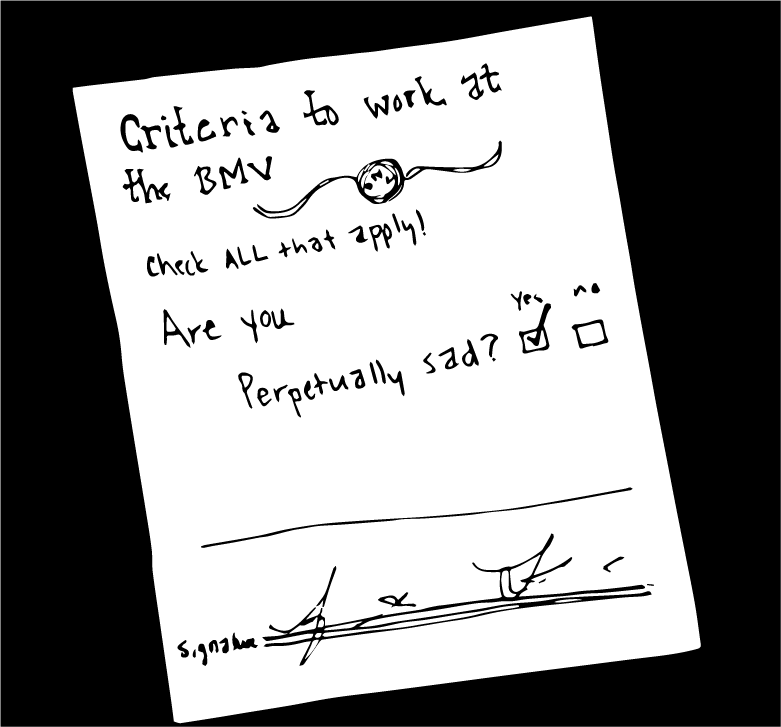 Criteria to work at
the BMV
BMV
Check ALL that apply!
yes no
Are you
Perpetually sad?
Signature